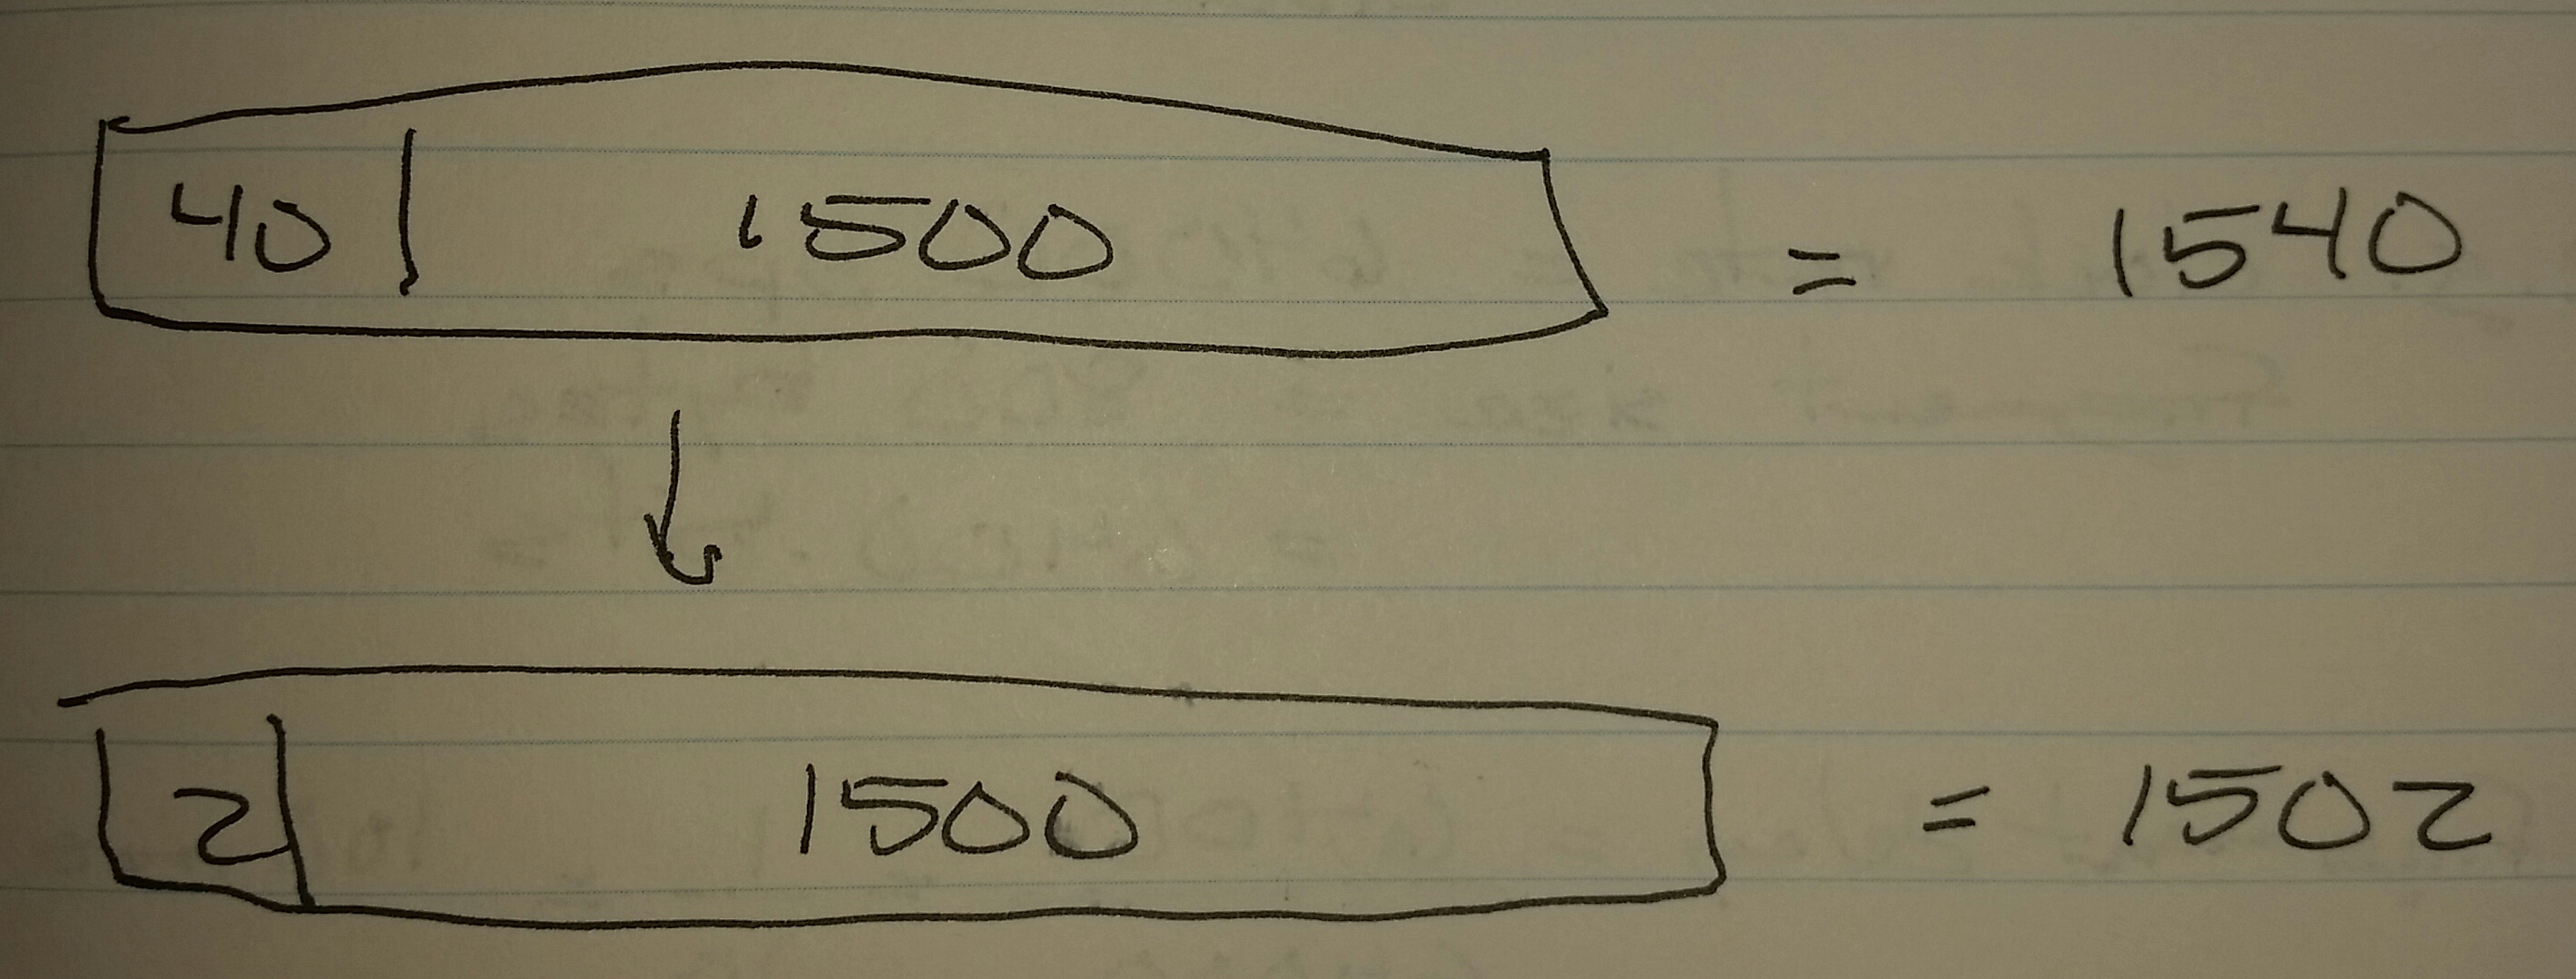 40 1500 = 1540
2 1500 = 1502